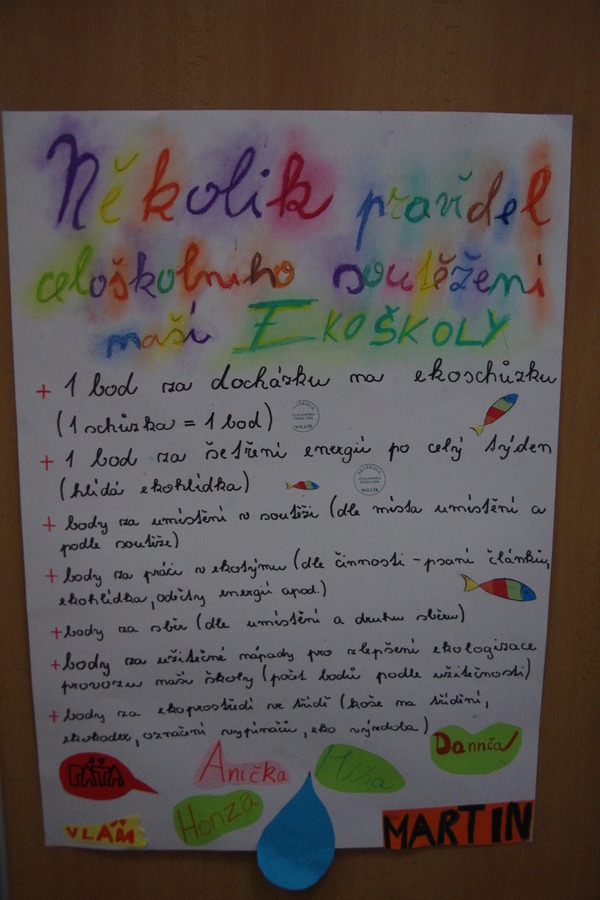 Několik pravidel
celoškolního soutěžení
naší EKOŠKOLY
+ 1 bod za docházku na ekoschůzku
(1 schůzka = 1 bod)
+ 1 bod za šetření energií po celý týden
(hlídá ekohlídka)
+ body za umístění v soutěži (dle místa umístění a
podle soutěže)
+ body za práci v ekotýmu (dle činnosti - psaní článků,
ekohlídka, odečty energií apod.)
+ body za sběr (dle umístění a druhu sběru)
+ body za užitečné nápady pro zlepšení ekologizace
provozu naší školy (počet bodů podle užitečnosti)
+ body za ekoprostředí ve třídě (koše na třídění,
ekokodex, označení vypínačů, eko výzdoba)
Dannča
PÁŤA
Anička
Míša
Honza
VLÁĎA
MARTIN